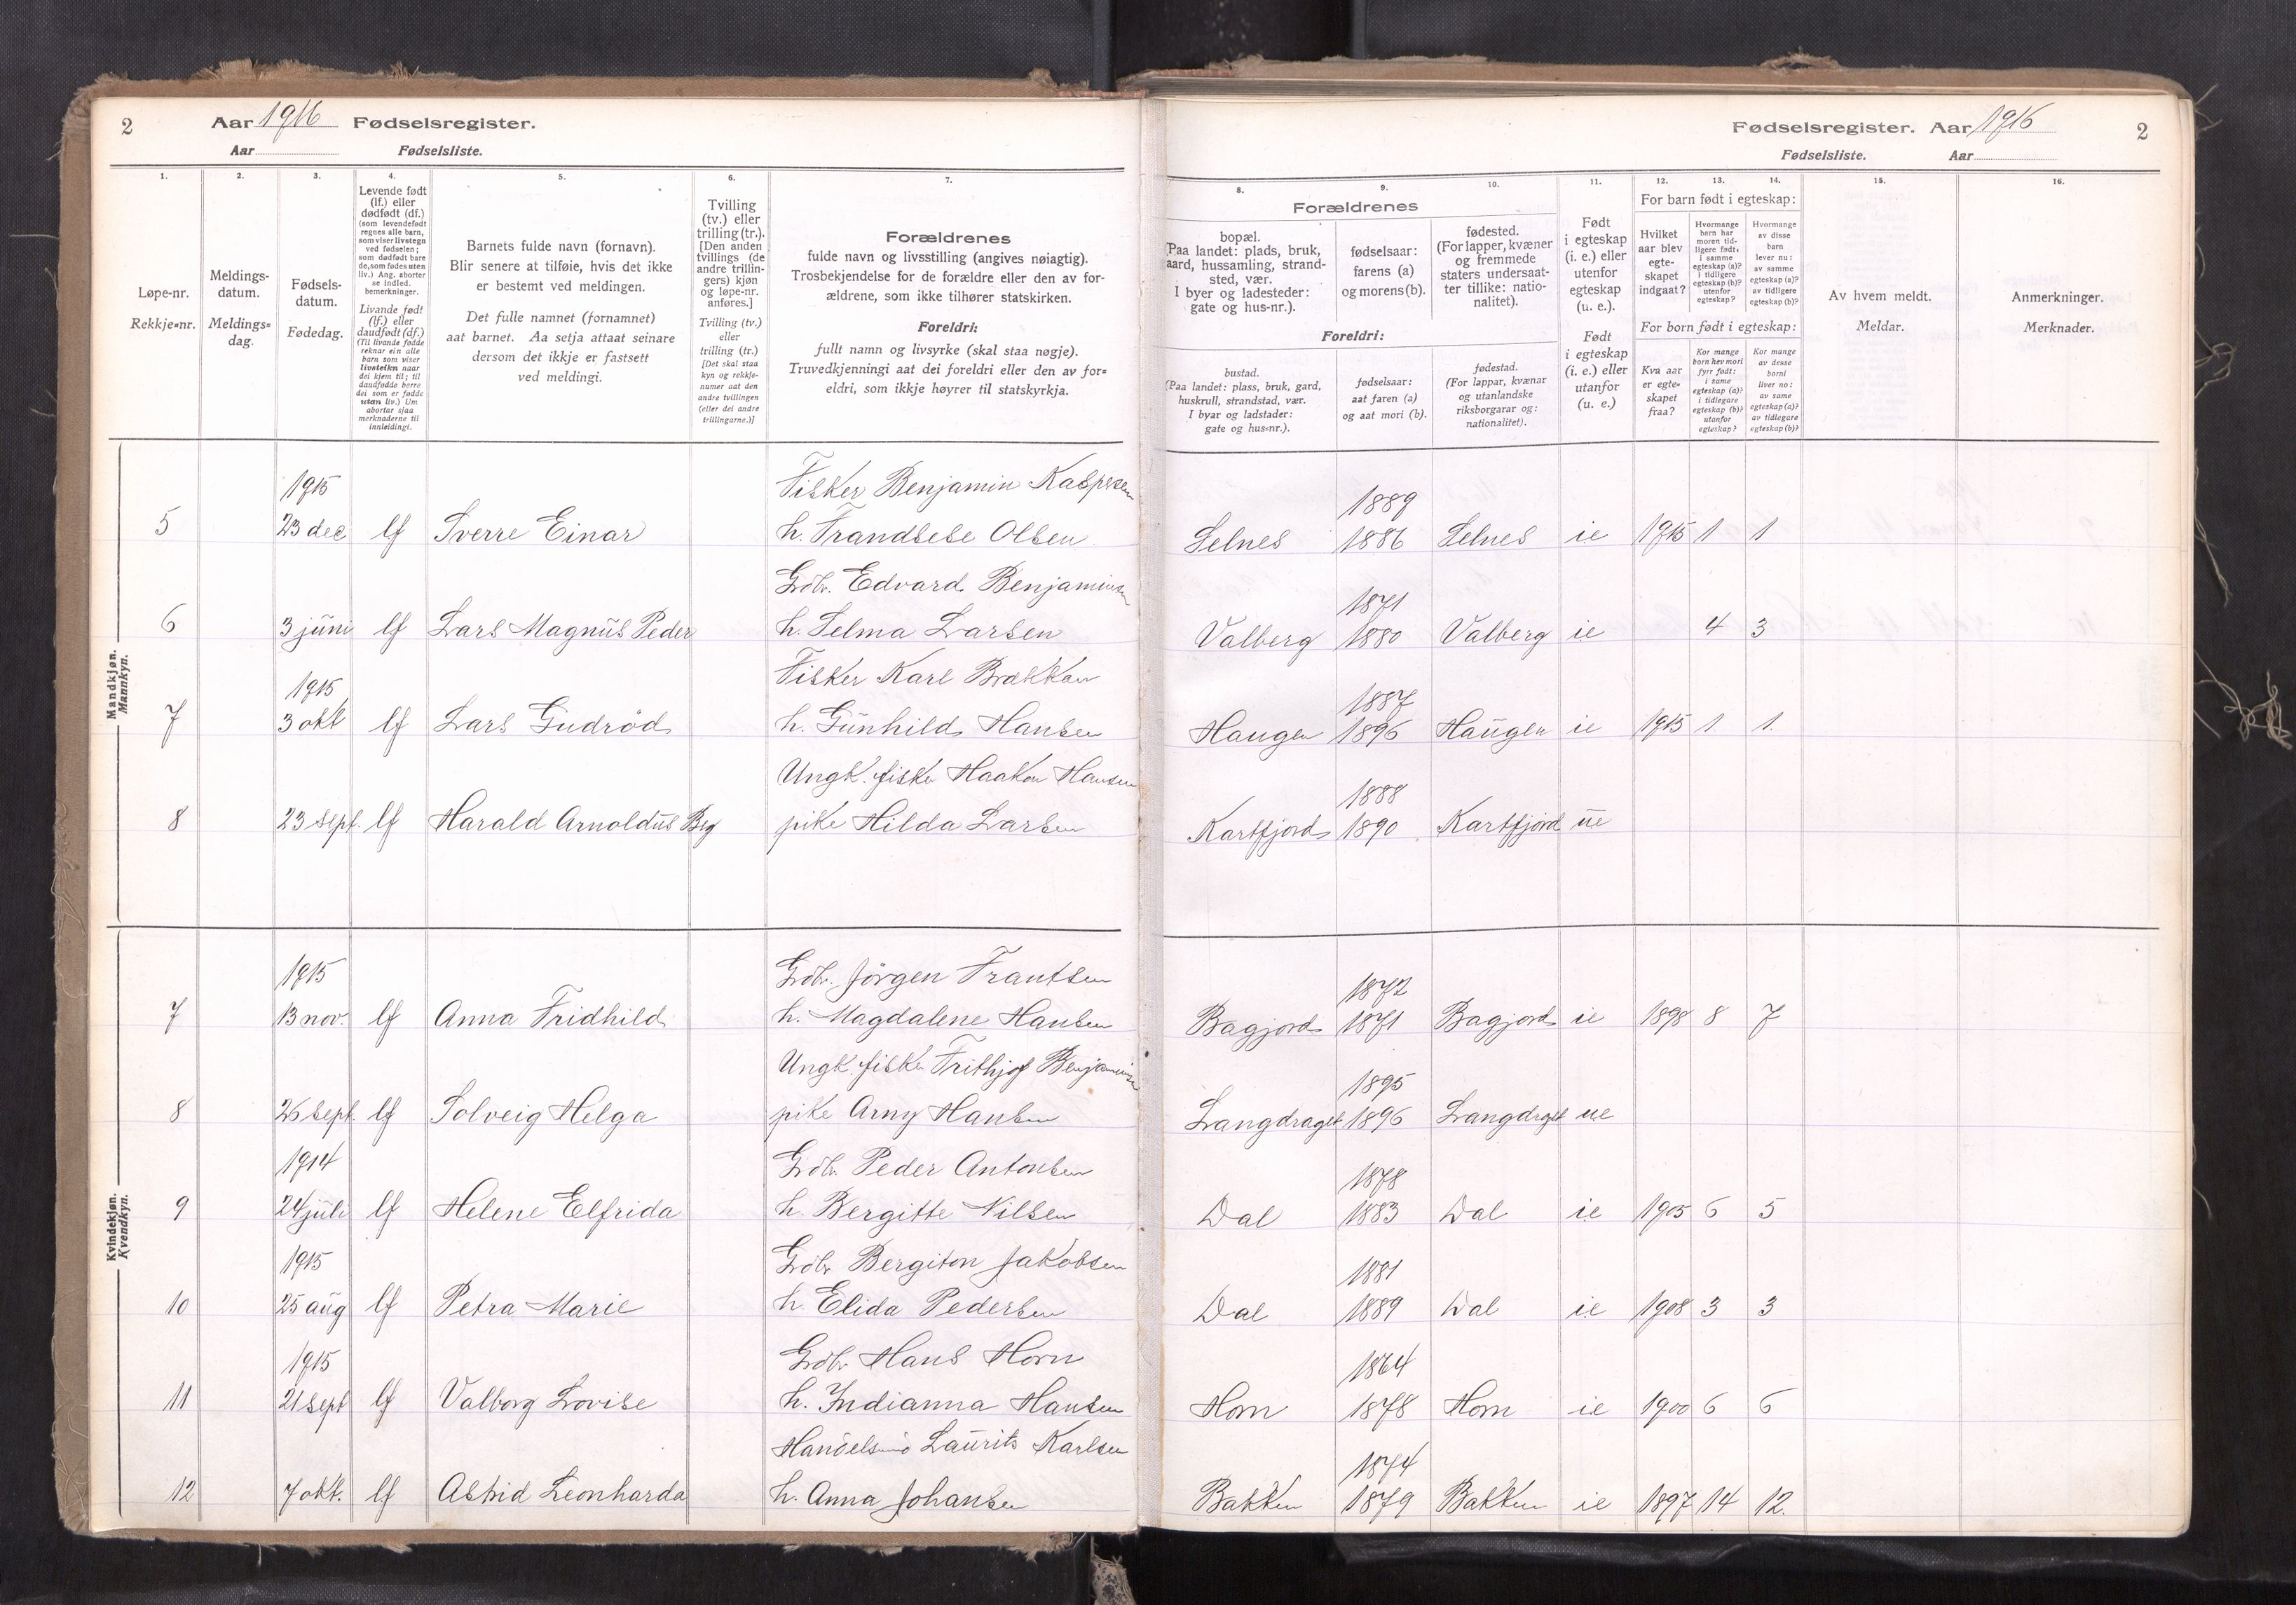 2 Aar 1916 Fødselsregister.
Aar Fødselsliste.
Fødselsregister. Aar 1916 2
Fødselsliste. Aar
1. 2. 3. 4. 5. 6. 7.
Løpe-nr.
Rekkje-nr.
Meldings-
datum.
Meldings-
dag.
Fødsels-
datum.
Fødedag.
Levende født
(lf.) eller
dødfødt (df.)
(som levendefødt
regnes alle barn,
som viser livstegn
ved fødselen;
som dødfødt bare
de, som fødes uten
liv.) Ang. aborter
se indled.
bemerkninger.
Livande født
(lf.) eller
daudfødt (df.)
(Til livande fødde
reknar ein alle
barn som viser
livsteikn naar
dei kjem til; til
daudfødde berre
dei som er fødde
utan liv.) Um
abortar sjaa
merknaderne til
innleidingi.
Barnets fulde navn (fornavn).
Blir senere at tilføie, hvis det ikke
er bestemt ved meldingen.
Det fulle namnet (fornamnet)
aat barnet. Aa setja attaat seinare
dersom det ikkje er fastsett
ved meldingi.
Tvilling
(tv.) eller
trilling (tr.).
[Den anden
tvillings (de
andre trillin-
gers) kjøn
og løpe-nr.
anføres.]
Tvilling (tv.)
eller
trilling (tr.)
[Det skal staa
kyn og rekkje-
numer aat den
andre tvillingen
(eller dei andre
trillingarne.)]
Forældrenes
fulde navn og livsstilling (angives nøiagtig).
Trosbekjendelse for de forældre eller den av for-
ældrene, som ikke tilhører statskirken.
Foreldri:
fullt namn og livsyrke (skal staa nøgje).
Truvedkjenningi aat dei foreldri eller den av for-
eldri, som ikkje høyrer til statskyrkja.
8. 9. 10. 11. 12. 13. 14. 15. 16.
Forældrenes
bopæl.
(Paa landet: plads, bruk,
aard, hussamling, strand-
sted, vær.
I byer og ladesteder:
gate og hus-nr.).
fødselsaar:
farens (a)
og morens (b).
fødested.
(For lapper, kvæner
og fremmede
staters undersaat-
ter tillike: natio-
nalitet).
Foreldri:
bustad.
(Paa landet: plass, bruk, gard,
huskrull, strandstad, vær.
I byar og ladstader:
gate og hus-nr.).
fødselsaar:
aat faren (a)
og aat mori (b).
fødestad.
(For lappar, kvænar
og utanlandske
riksborgarar og:
nationalitet).
Født
i egteskap
(i. e.) eller
utenfor
egteskap
(u. e.).
Født
i egteskap
(i. e.) eller
utanfor
(u. e.)
For barn født i egteskap:
Hvilket
aar blev
egte-
skapet
indgaat?
Hvormange
barn har
moren tid-
ligere født:
i samme
egteskap (a)?
i tidligere
egteskap (b)?
utenfor
egteskap?
Hvormange
av disse
barn
lever nu:
av samme
egteskap (a)?
av tidligere
egteskap (b)?
For born født i egteskap:
Kva aar
er egte-
skapet
fraa?
Kor mange
born hev mori
fyrr født:
i same
egteskap (a)?
i tidlegare
egteskap (b)?
utanfor
egteskap?
Kor mange
av desse
borni
liver no:
av same
egteskap (a)?
av tidlegare
egteskap (b)?
Av hvem meldt.
Meldar.
Anmerkninger.
Merknader.
Mandkjøn.
Mannkyn.
1915 Fisker Benjamin Kaspersen 1889
5 23 dec lf Sverre Einar h. Frandsese Olsen Selnes 1886 Selnes ie 1915 1 1
Grdbr. Edvard Benjaminsen 1871
6 3 juni lf Lars Magnus Peder h. Selma Larsen Valberg 1880 Valberg ie 4 3
1915 Fisker Karl Brækkan 1887
7 3 okt lf Lars Gudrød h. Gunhild Hansen Haugen 1896 Haugen ie 1915 1 1.
Ungk. fisker Haakon Hansen 1888
8 23 sept. lf Harald Arnoldus Berg pike Hilda Larsen Kartfjord 1890 Kartfjord ue
Kvindekjøn.
Kvendkyn.
1915 Grdbr. Jörgen Frantsen 1872
7 13 nov. lf Anna Fridhild h. Magdalene Hansen Bagjord 1871 Bagjord ie 1898 8 7
Ungk. fisker Frithjof Benjaminsen 1895
8 26 sept. lf Solveig Helga pike Arny Hansen Langdraget 1896 Langdraget ue
1914 Grdbr Peder Antonsen 1878
9 24 juli lf Helene Elfrida h. Bergitte Nilsen Dal 1883 Dal ie 1905 6 5
1915 Grdbr Bergiton Jakobsen 1881
10 25 aug lf Petra Marie h. Elida Pedersen Dal 1889 Dal ie 1908 3 3
1915 Grdbr Hans Horn 1864
11 21 sept lf Valborg Lovise h. Indianna Hansen Horn 1878 Horn ie 1900 6 6
Handelsmd Laurits Karlsen 1874
12 7 okt. lf Astrid Leonharda h. Anna Johansen Bakken 1879 Bakken ie 1897 14 12.